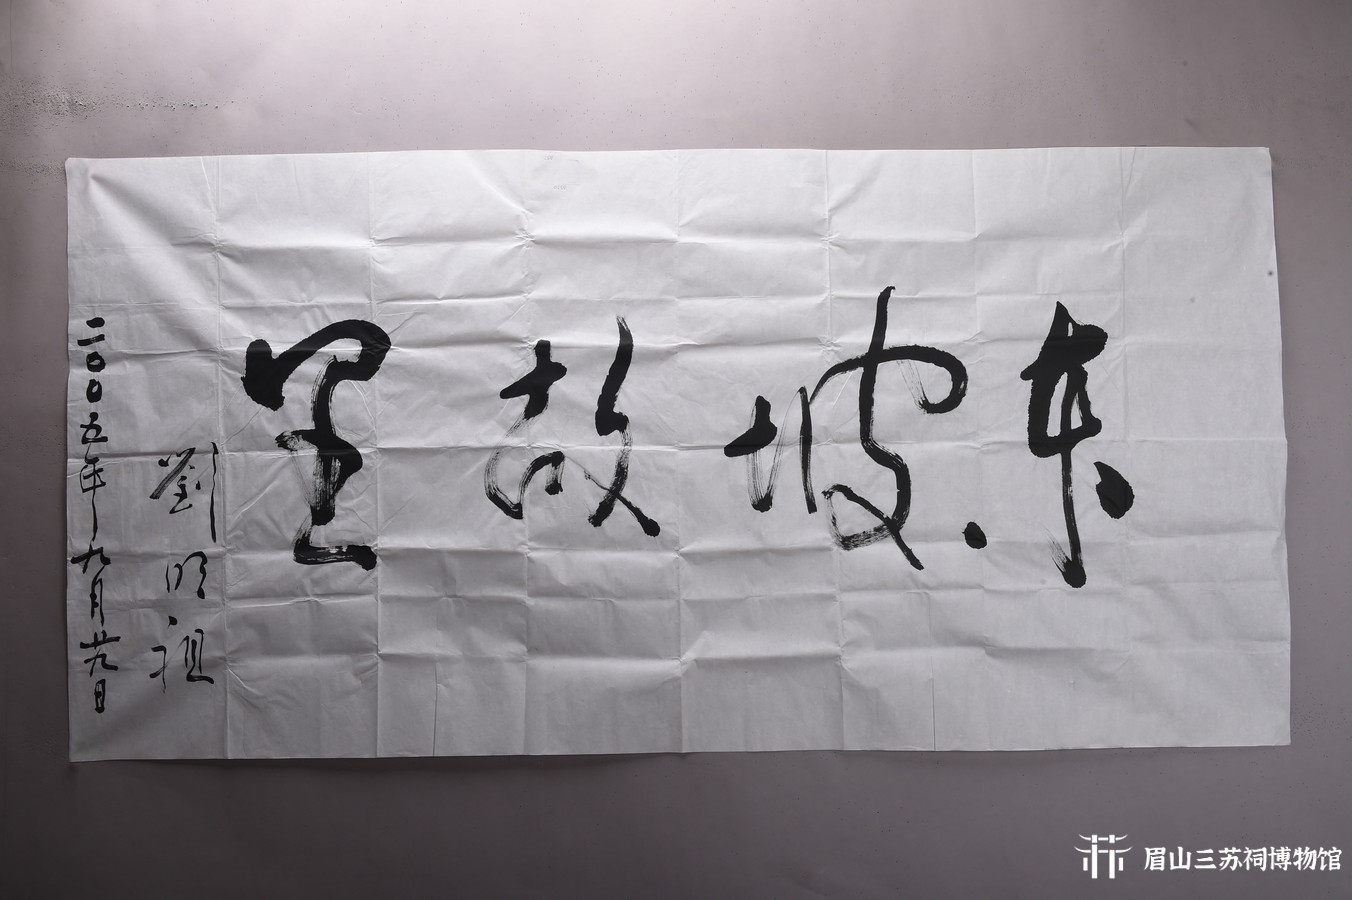 东坡故里
劉明祖
二00五年九月廿九日
眉山三苏祠博物馆